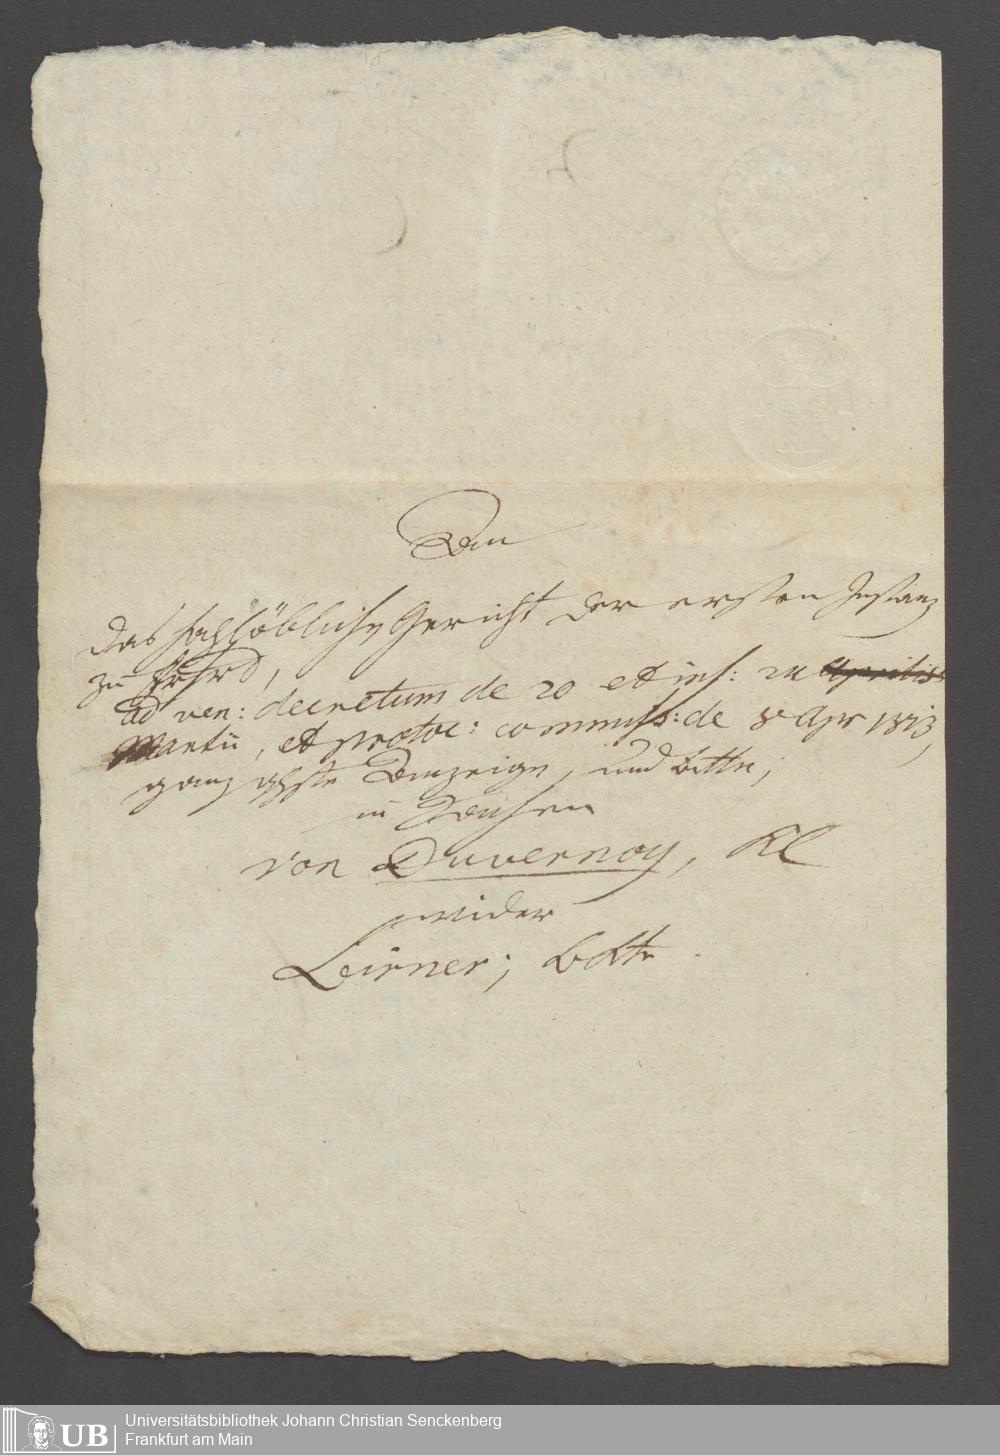 An
das hochlöbliche Gericht der ersten Instanz
zu
ad ven: decretum de 20 et ins: 24 Aprilis
Martii, et protoc: commiss: de 8 Apr 1813,
ganz ghste Anzeige, und Bitte,
in Sachen
von Duvernoy, Kl
wider
Leirner; Bekte.
Universitätsbibliothek Johann Christian Senckenberg
Frankfurt am Main
UB